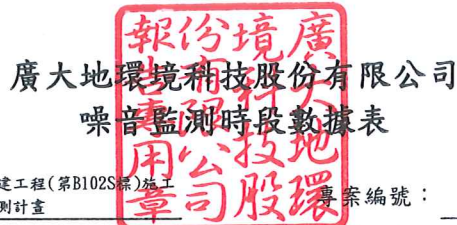 廣大地環境科技股份有限公司
噪音監測時段數據表
建工程(第B102S標)施工
測計畫
專案編號：
廣大地環
境科技股
份有限公司
報告專用章